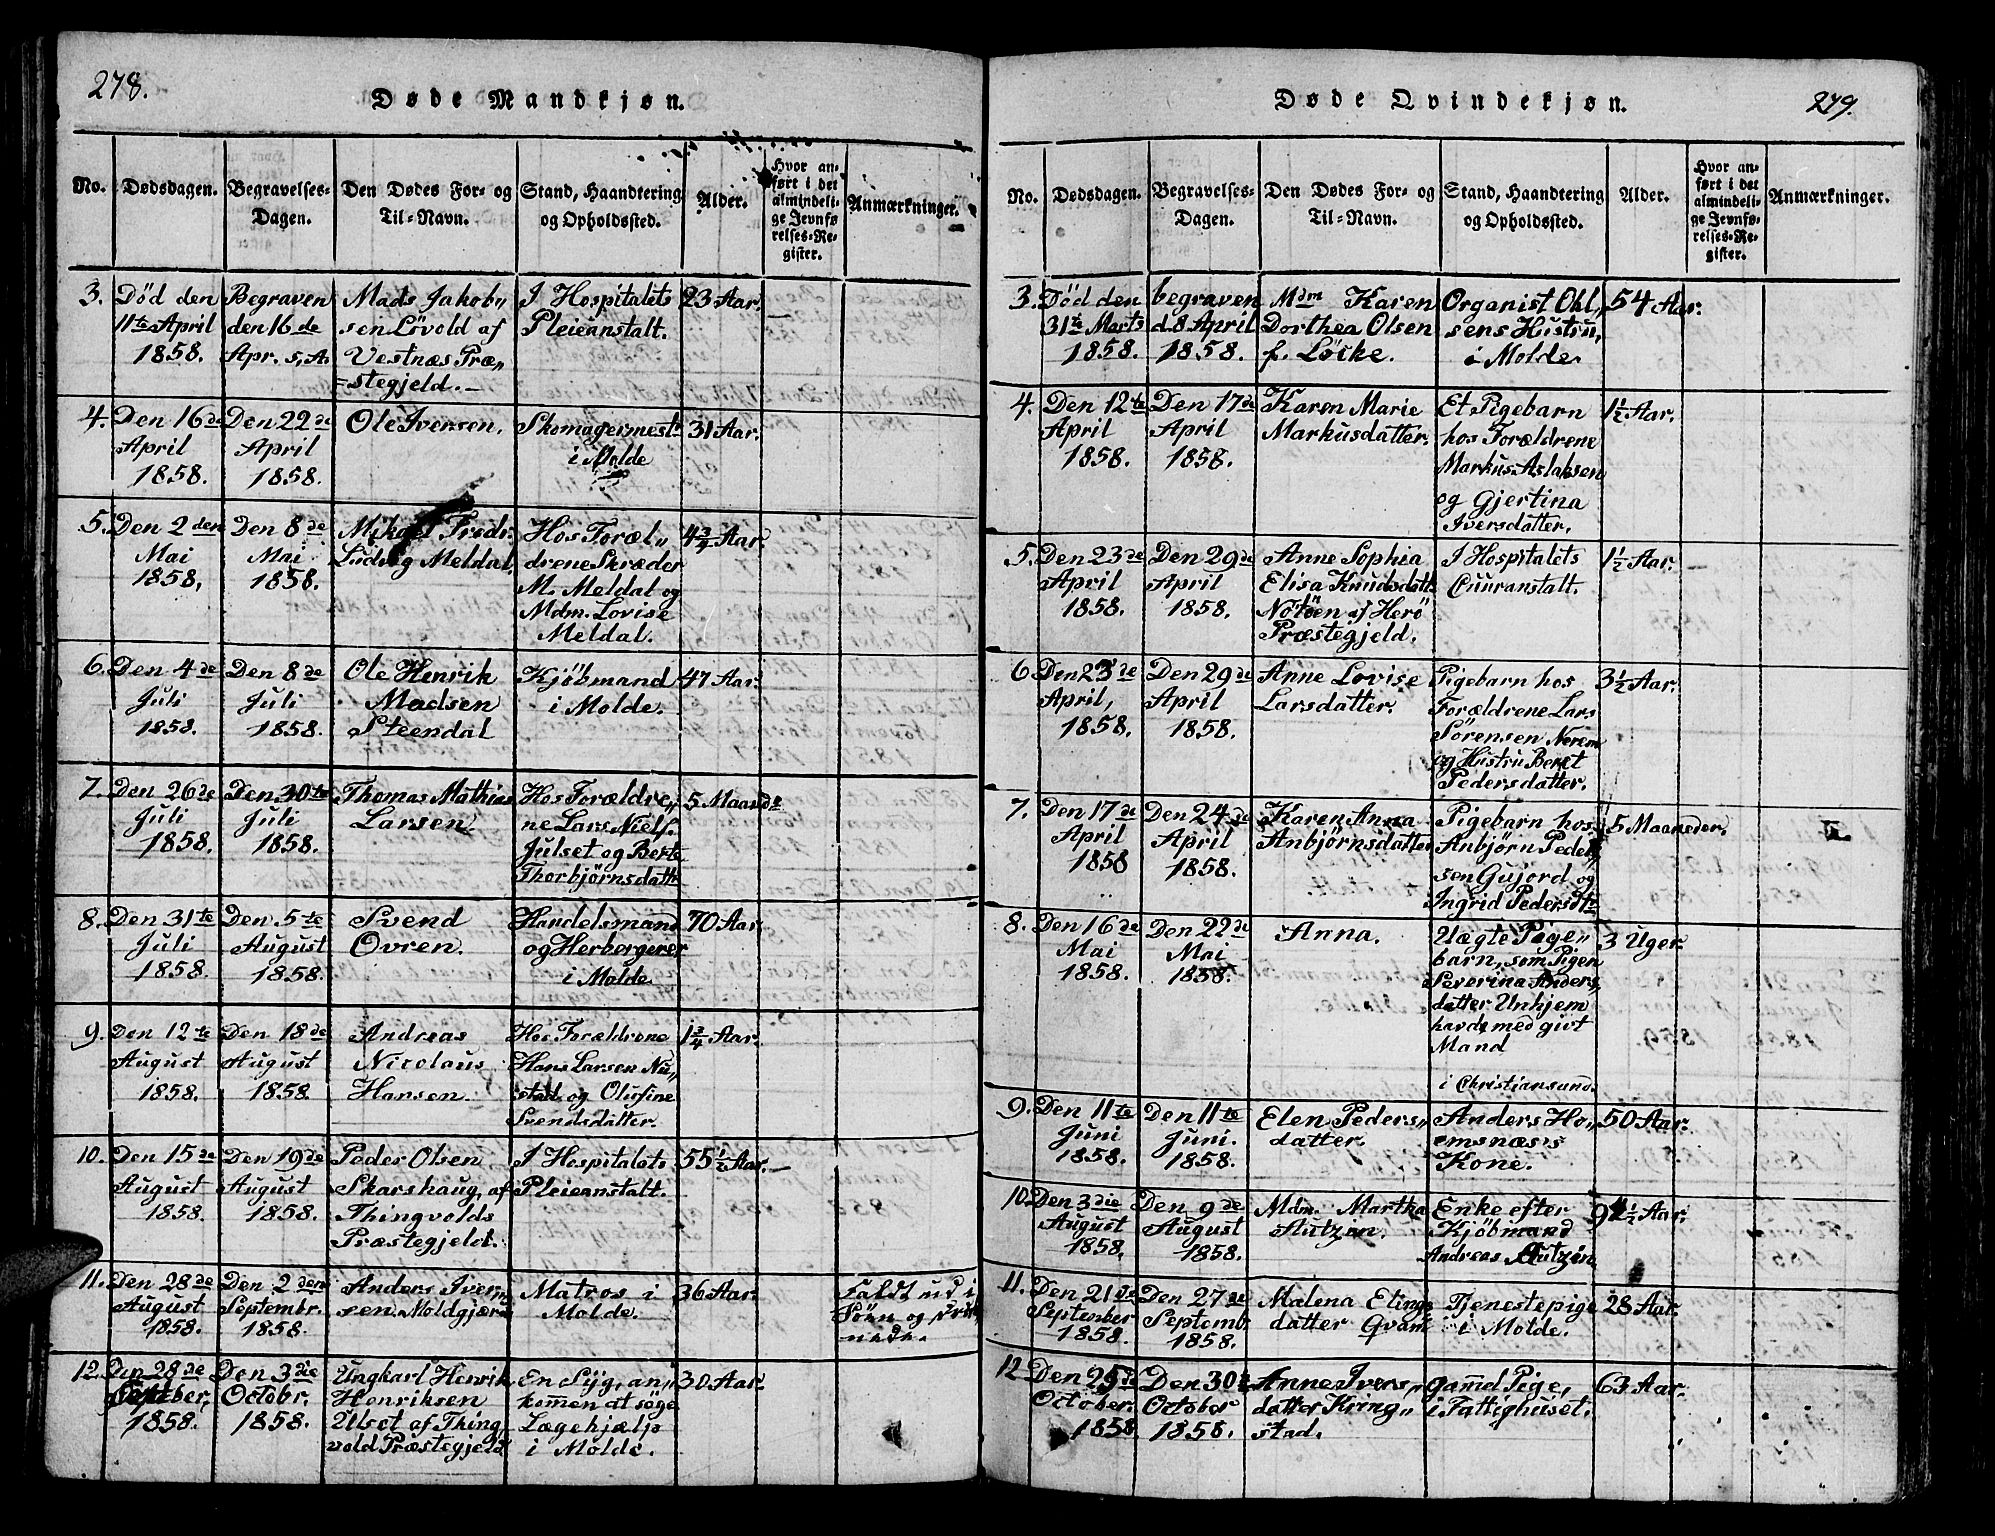 278.
Døde Mandkjøn.
No.
Dødsdagen.
Begravelses-
Dagen.
Den Dødes For- og
Til-Navn.
Stand, Haandtering
og Opholdssted.
Alder.
Hvor an-
ført i det
almindeli-
ge Jevnfø-
relses-Re-
gister.
Anmærkninger.
3.
Død den
11te April
1858.
Begraven
den 16de
Apr. s. A.
Mads Jakob„
sen Lövold af
Vestnæs Præ„
=stegjeld.—
I Hospitalets
Pleieanstalt.
23 Aar.
4.
Den 16de
April
1858.
Den 22de
April
1858.
Ole Iversen.
Skomagermestr
i Molde
31 Aar.
5.
Den 2den
Mai
1858.
Den 8de
Mai
1858.
Mikael Fredr.
Ludvig Meldal.
Hos Foræl„
drene Skræder
M. Meldal og
Mdm. Lovise
Meldal.
4 3/4 Aar.
6.
Den 4de
Juli
1858.
Den 8de
Juli
1858.
Ole Henrik
Madsen
Steendal
Kjöbmand
i Molde.
47 Aar.
7.
Den 26de
Juli
1858.
Den 30te
Juli
1858.
Thomas Mathias
Larsen
Hos Forældre„
ne Lars Niels.
Julset og Berte
Thorbjörnsdattr
5 Maander
8.
Den 31te
Juli
1858.
Den 5te
August
1858.
Svend
Ovren.
Handelsmand
og Herbergerer
i Molde
70 Aar.
9.
Den 12te
August
1858.
Den 18de
August
1858.
Andreas
Nicolaus
Hansen.
Hos Forældrene
Hans Larsen Nu„
stad og Olufine
Svendsdatter.
1 3/4 Aar.
10.
Den 15de
August
1858.
Den 19de
August
1858.
Peder Olsen
Skarshaug, af
Thingvolds
Præstegjeld.
I Hospitalets
Pleieanstalt.
55 1/2 Aar.
11.
Den 28de
August
1858.
Den 2den
Septembr.
1858.
Anders Iver„
sen Moldgjære
Matros i
Molde.
36 Aar.
Faldt ud i
Søen og
12.
Den 28de
1858.
Den 3die
Octobr.
1858.
Ungkarl Henrik
Henriksen
Ulset af Thing„
vold Præstegjeld
En Syg, an„
kommen at søge
Lægehjælp
i Molde.
30 Aar.
279.
Døde Qvindekjøn.
No.
Dødsdagen.
Begravelses-
Dagen.
Den Dødes For- og
Til-Navn.
Stand, Haandtering
og Opholdssted.
Alder.
Hvor an-
ført i det
almindeli-
ge Jevnfø-
relses-Re-
gister.
Anmærkninger.
3.
Død den
31te Marts
1858.
begraven
d. 8 April
1858.
Mdm Karen
Dorthea Olsen
f. Löcke.
Organist Ohl„
sens Hustru,
i Molde.
54 Aar.
4.
Den 12te
April
1858.
Den 17de
April
1858.
Karen Marie
Markusdatter.
Et Pigebarn
hos Forældrene
Markus Aslaksen
og Gjertina
Iversdatter.
1 1/2 Aar.
5.
Den 23de
April
1858.
Den 29de
April
1858.
Anne Sophia
Elisa Knudsdatt.
Notöen af Herö
Præstegjeld.
I Hospitalets
Cuuranstalt.
1 1/2 Aar.
6
Den 23de
April,
1858.
Den 29de
April
1858.
Anne Lovise
Larsdatter.
Pigebarn hos
Forældrene Lars
Sörensen Nerem
og Hustru Beret
Pedersdatter.
3 1/2 Aar.
7.
Den 17de
April
1858
Den 24de
April
1858.
Karen Anna
Anbjörnsdatter
Pigebarn hos
Anbjörn Peder„
sen Gujord og
Ingrid Pedersdtr
5 Maaneder.
8.
Den 16de
Mai
1858.
Den 22de
Mai
1858.
Anna.
Uægte Pige„
barn, som Pigen
Severina Anders„
datter Unhjem
havde med givt
Mand
i Christiansund.
3 Uger.
9.
Den 11te
Juni
1858.
Den 11te
Juni.
1858.
Elen Peders„
datter.
Anders Ho„
emsnæs's
Kone.
50 Aar.
10.
Den 3die
August
1858.
Den 9de
August
1858.
Mdm. Martha
Autzen.
Enke efter
Kjöbmand
Andreas Autzen
91 1/2 Aar.
11.
Den 21de
September
1858.
Den 27de
Septembr
1858.
Malena Elings
datter Qvam
Tjenestepige
i Molde.
28 Aar.
12
Den 25de
October.
1858
Den 30te
October
1858.
Anne Ivers„
datter Kring„
stad.
gam̄el Pige,
i Fattighuset.
63 Aar.